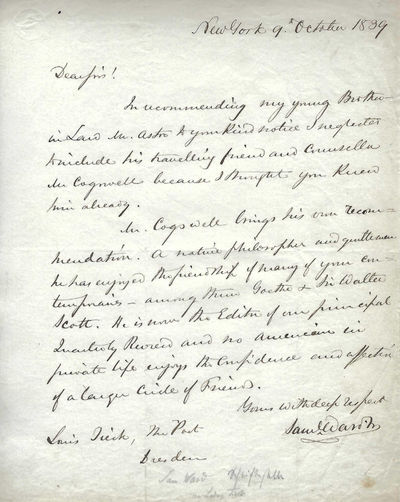 New York 9th October 1839
Dear Sir!
In recommending my young Brother
in Law Mr. Astor to your kind notice I neglected
to include his travelling friend and Counsellor
Mr Cogswell because I thought you knew
him already.
Mr. Cogswell brings his own recom-
mendation. A native philosopher and gentleman
he has enjoyed the friendship of many of your con-
temporaries — among them Goethe & Sir Walter
Scott. He is now the Editor of our principal
Quarterly Review and no American in
private life enjoys the Confidence and affection
of a larger Circle of Friends.
Yours with deep respect
Saml. Ward Jr
Louis Tieck, The Poet
Dresden
Sam Ward